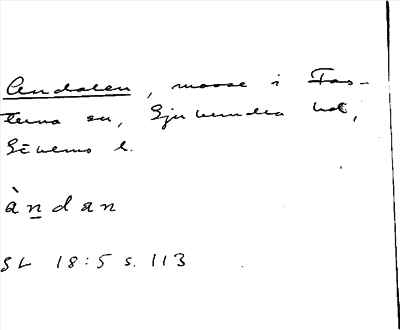 Andalen, mosse i Tas-
terna sn, Sjuhundra hd,
Sthlms l.
àndan
SL 18:5 s. 113